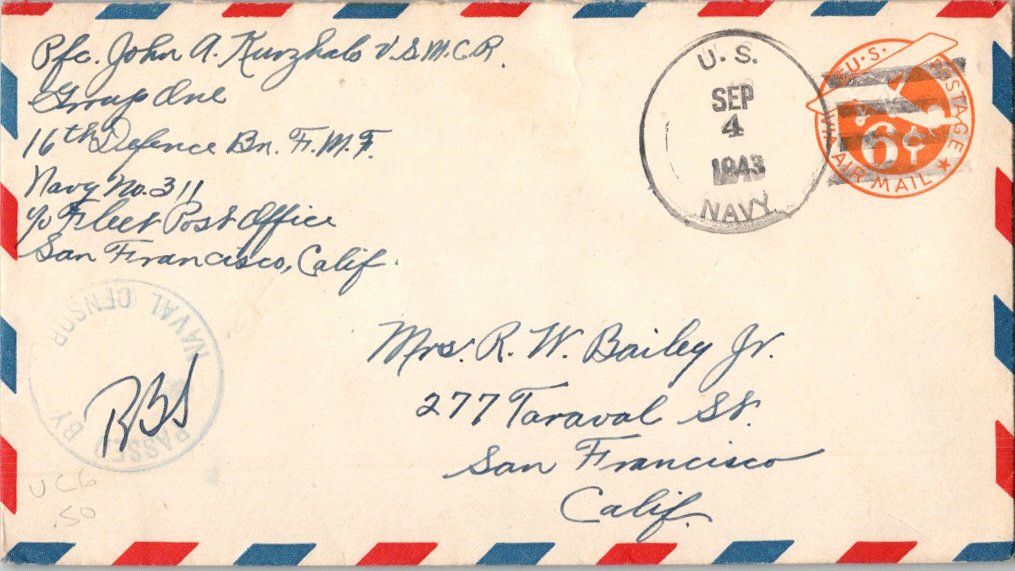 Pfc. John A. Kurzhals U.S.M.C.R.
Group One
16th Defence Bn. F.M.F.
Navy No. 311
c/o Fleet Post Office
San Francisco, Calif.
U.S.
SEP
4
1943
NAVY
U.S. POSTAGE
6¢
VIA AIR MAIL
PASSED BY NAVAL CENSOR
Mrs. R. W. Bailey Jr.
277 Taraval St.
San Francisco
Calif.
UC6
.50